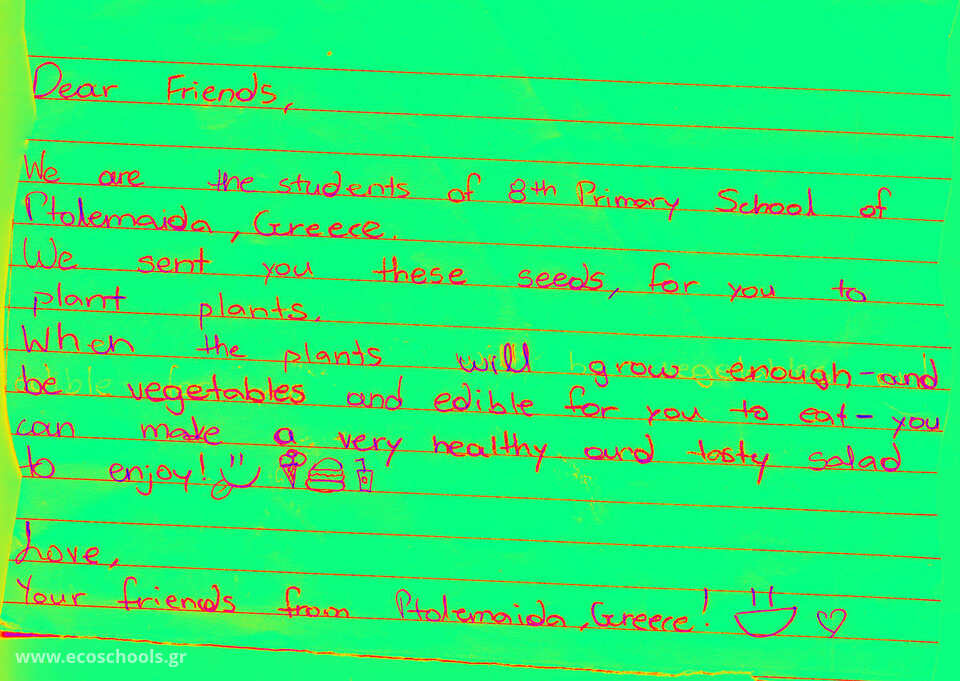 Dear Friends,
We are the students of 8th Primary School of
Ptolemaida, Greece.
We sent you these seeds, for you to
plant plants.
When the plants will grow enough - and
be vegetables and edible for you to eat - you
can make a very healthy and tasty salad
to enjoy!
Love,
Your friends from Ptolemaida, Greece!
www.ecoschools.gr